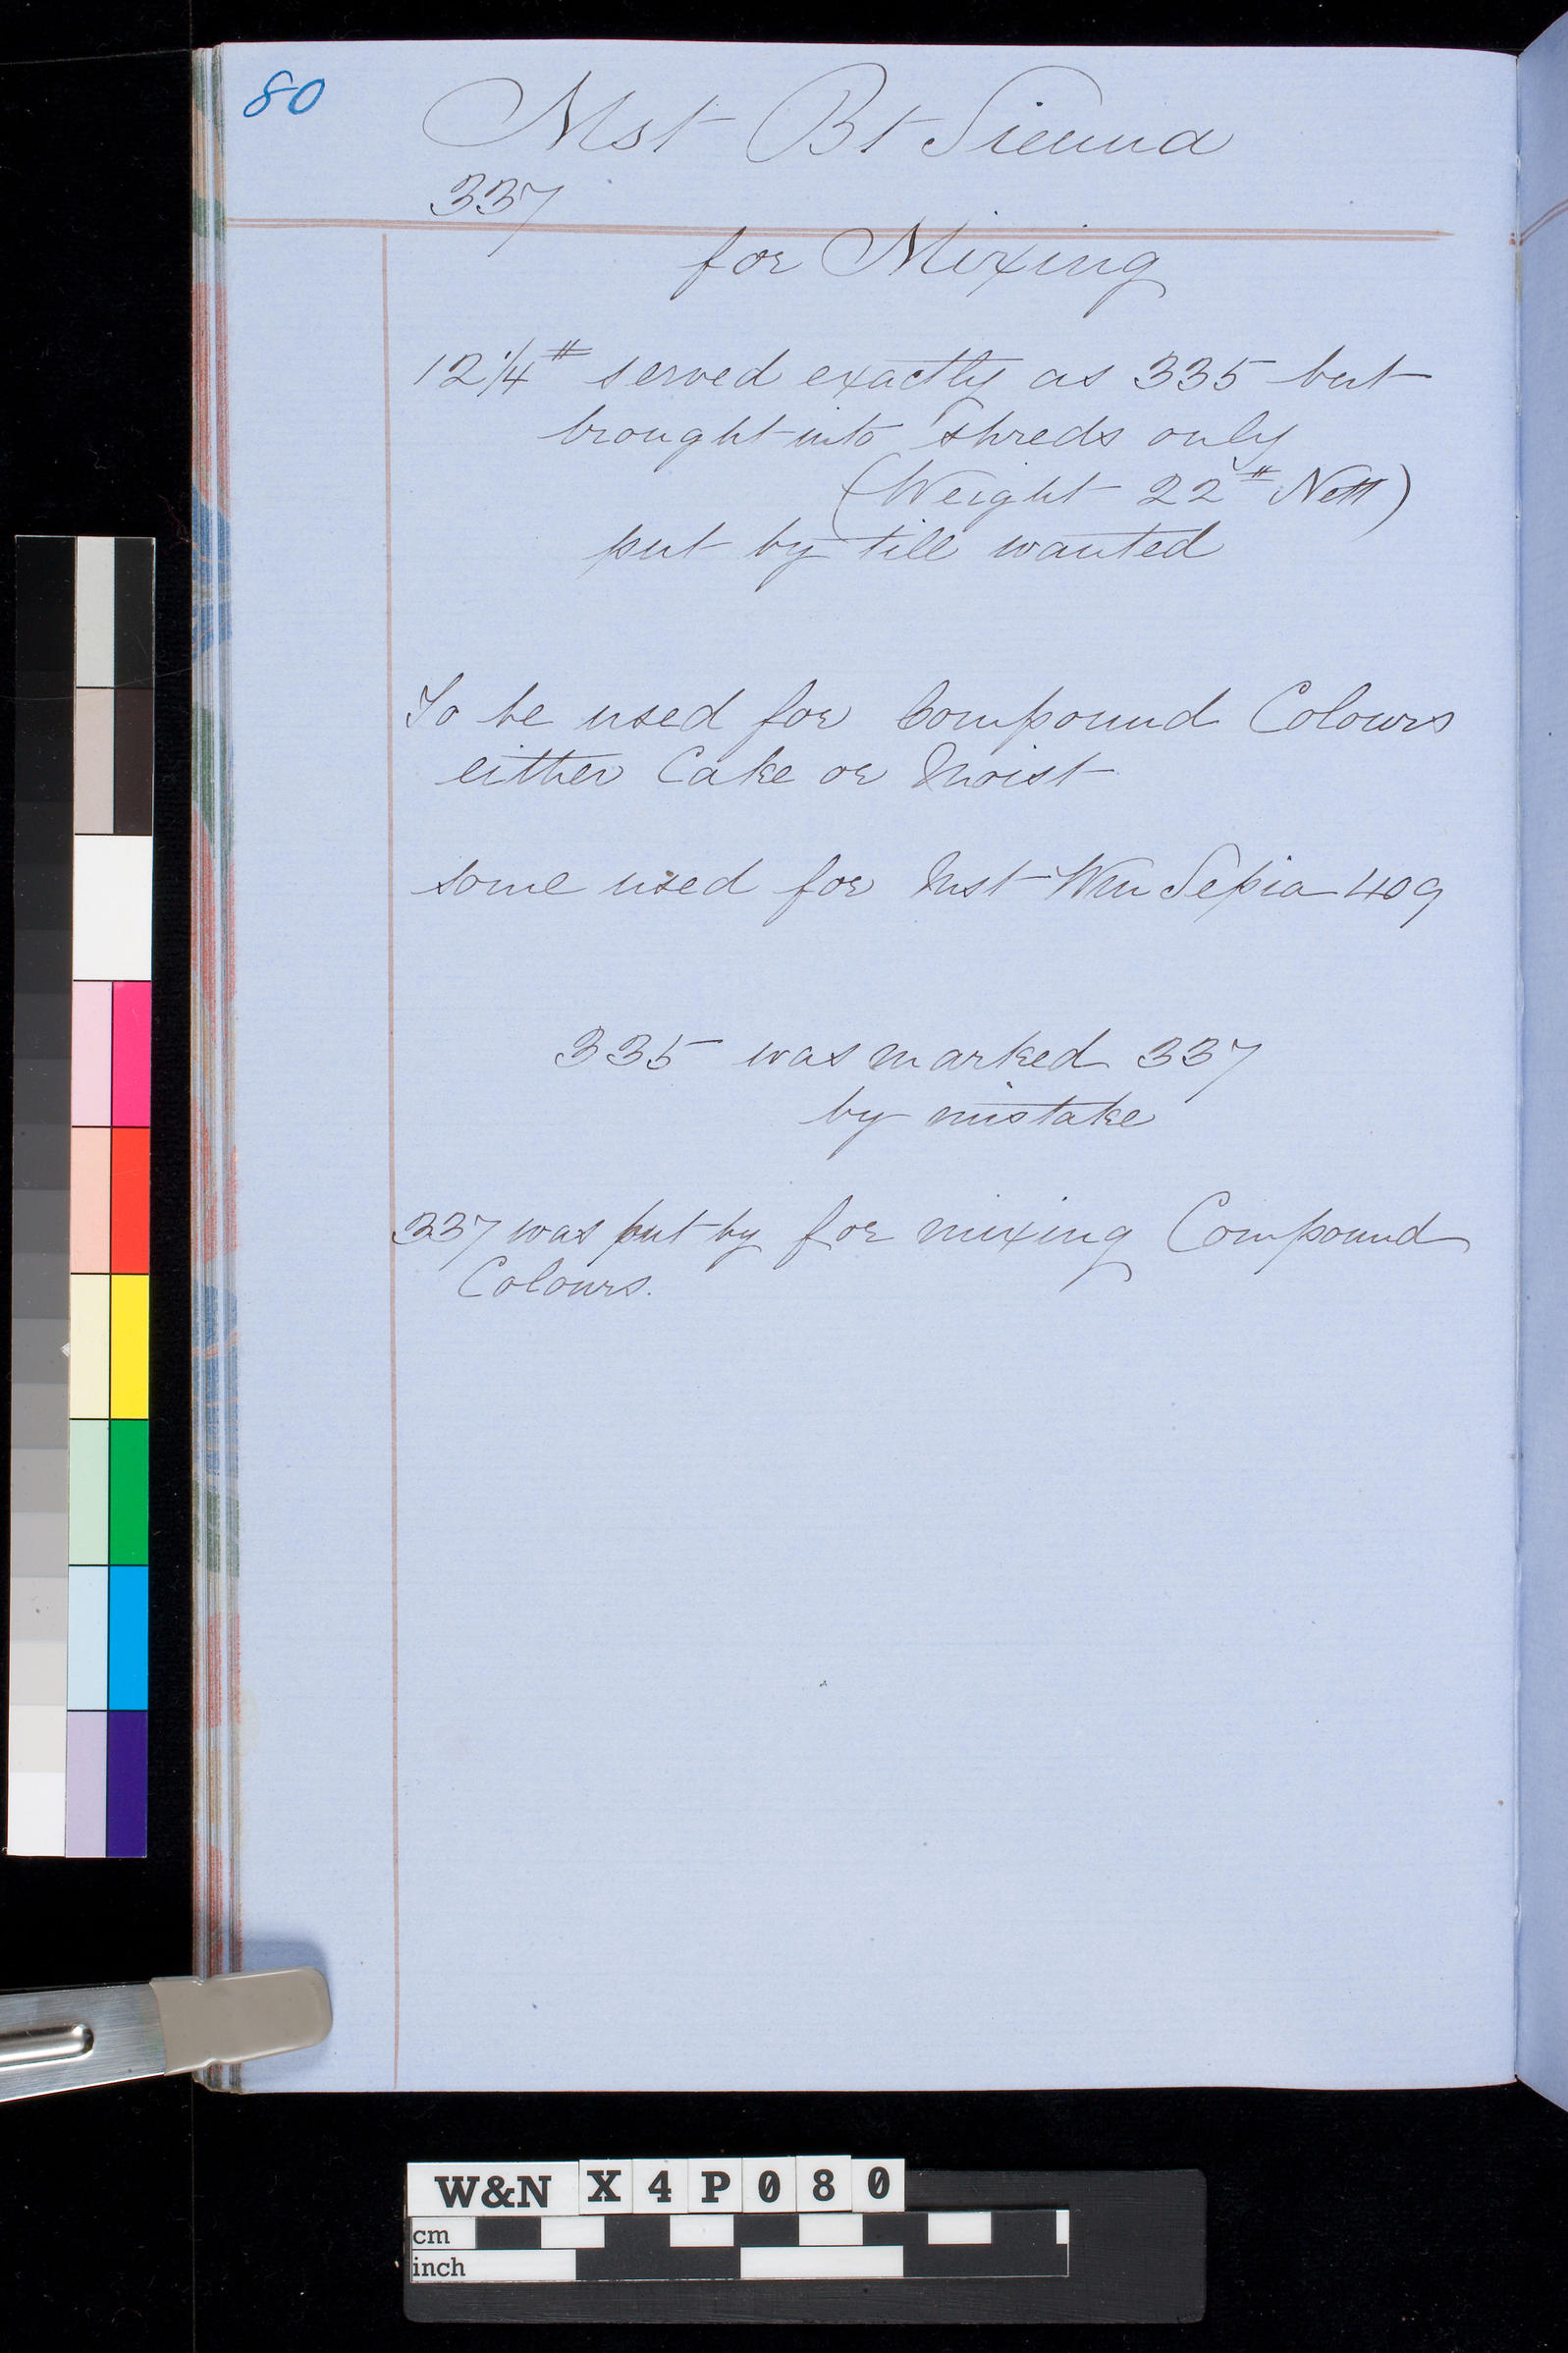 80
Mst Bt Sienna
337
for Mixing
12 1/4 # served exactly as 335 but
brought into shreds only
(Weight 22 # Nett)
put by till wanted
To be used for Compound Colours
either Cake or Moist
some used for Mst Wm Sepia 409
335 was marked 337
by mistake
337 was put by for mixing Compound
Colours.
W&N X 4 P 0 8 0
cm
inch